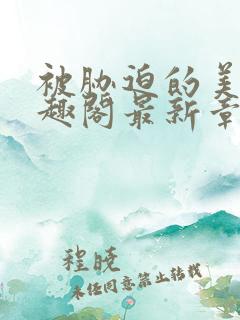 被胁迫的美
趣阁最新章
程晓
未经同意禁止转载